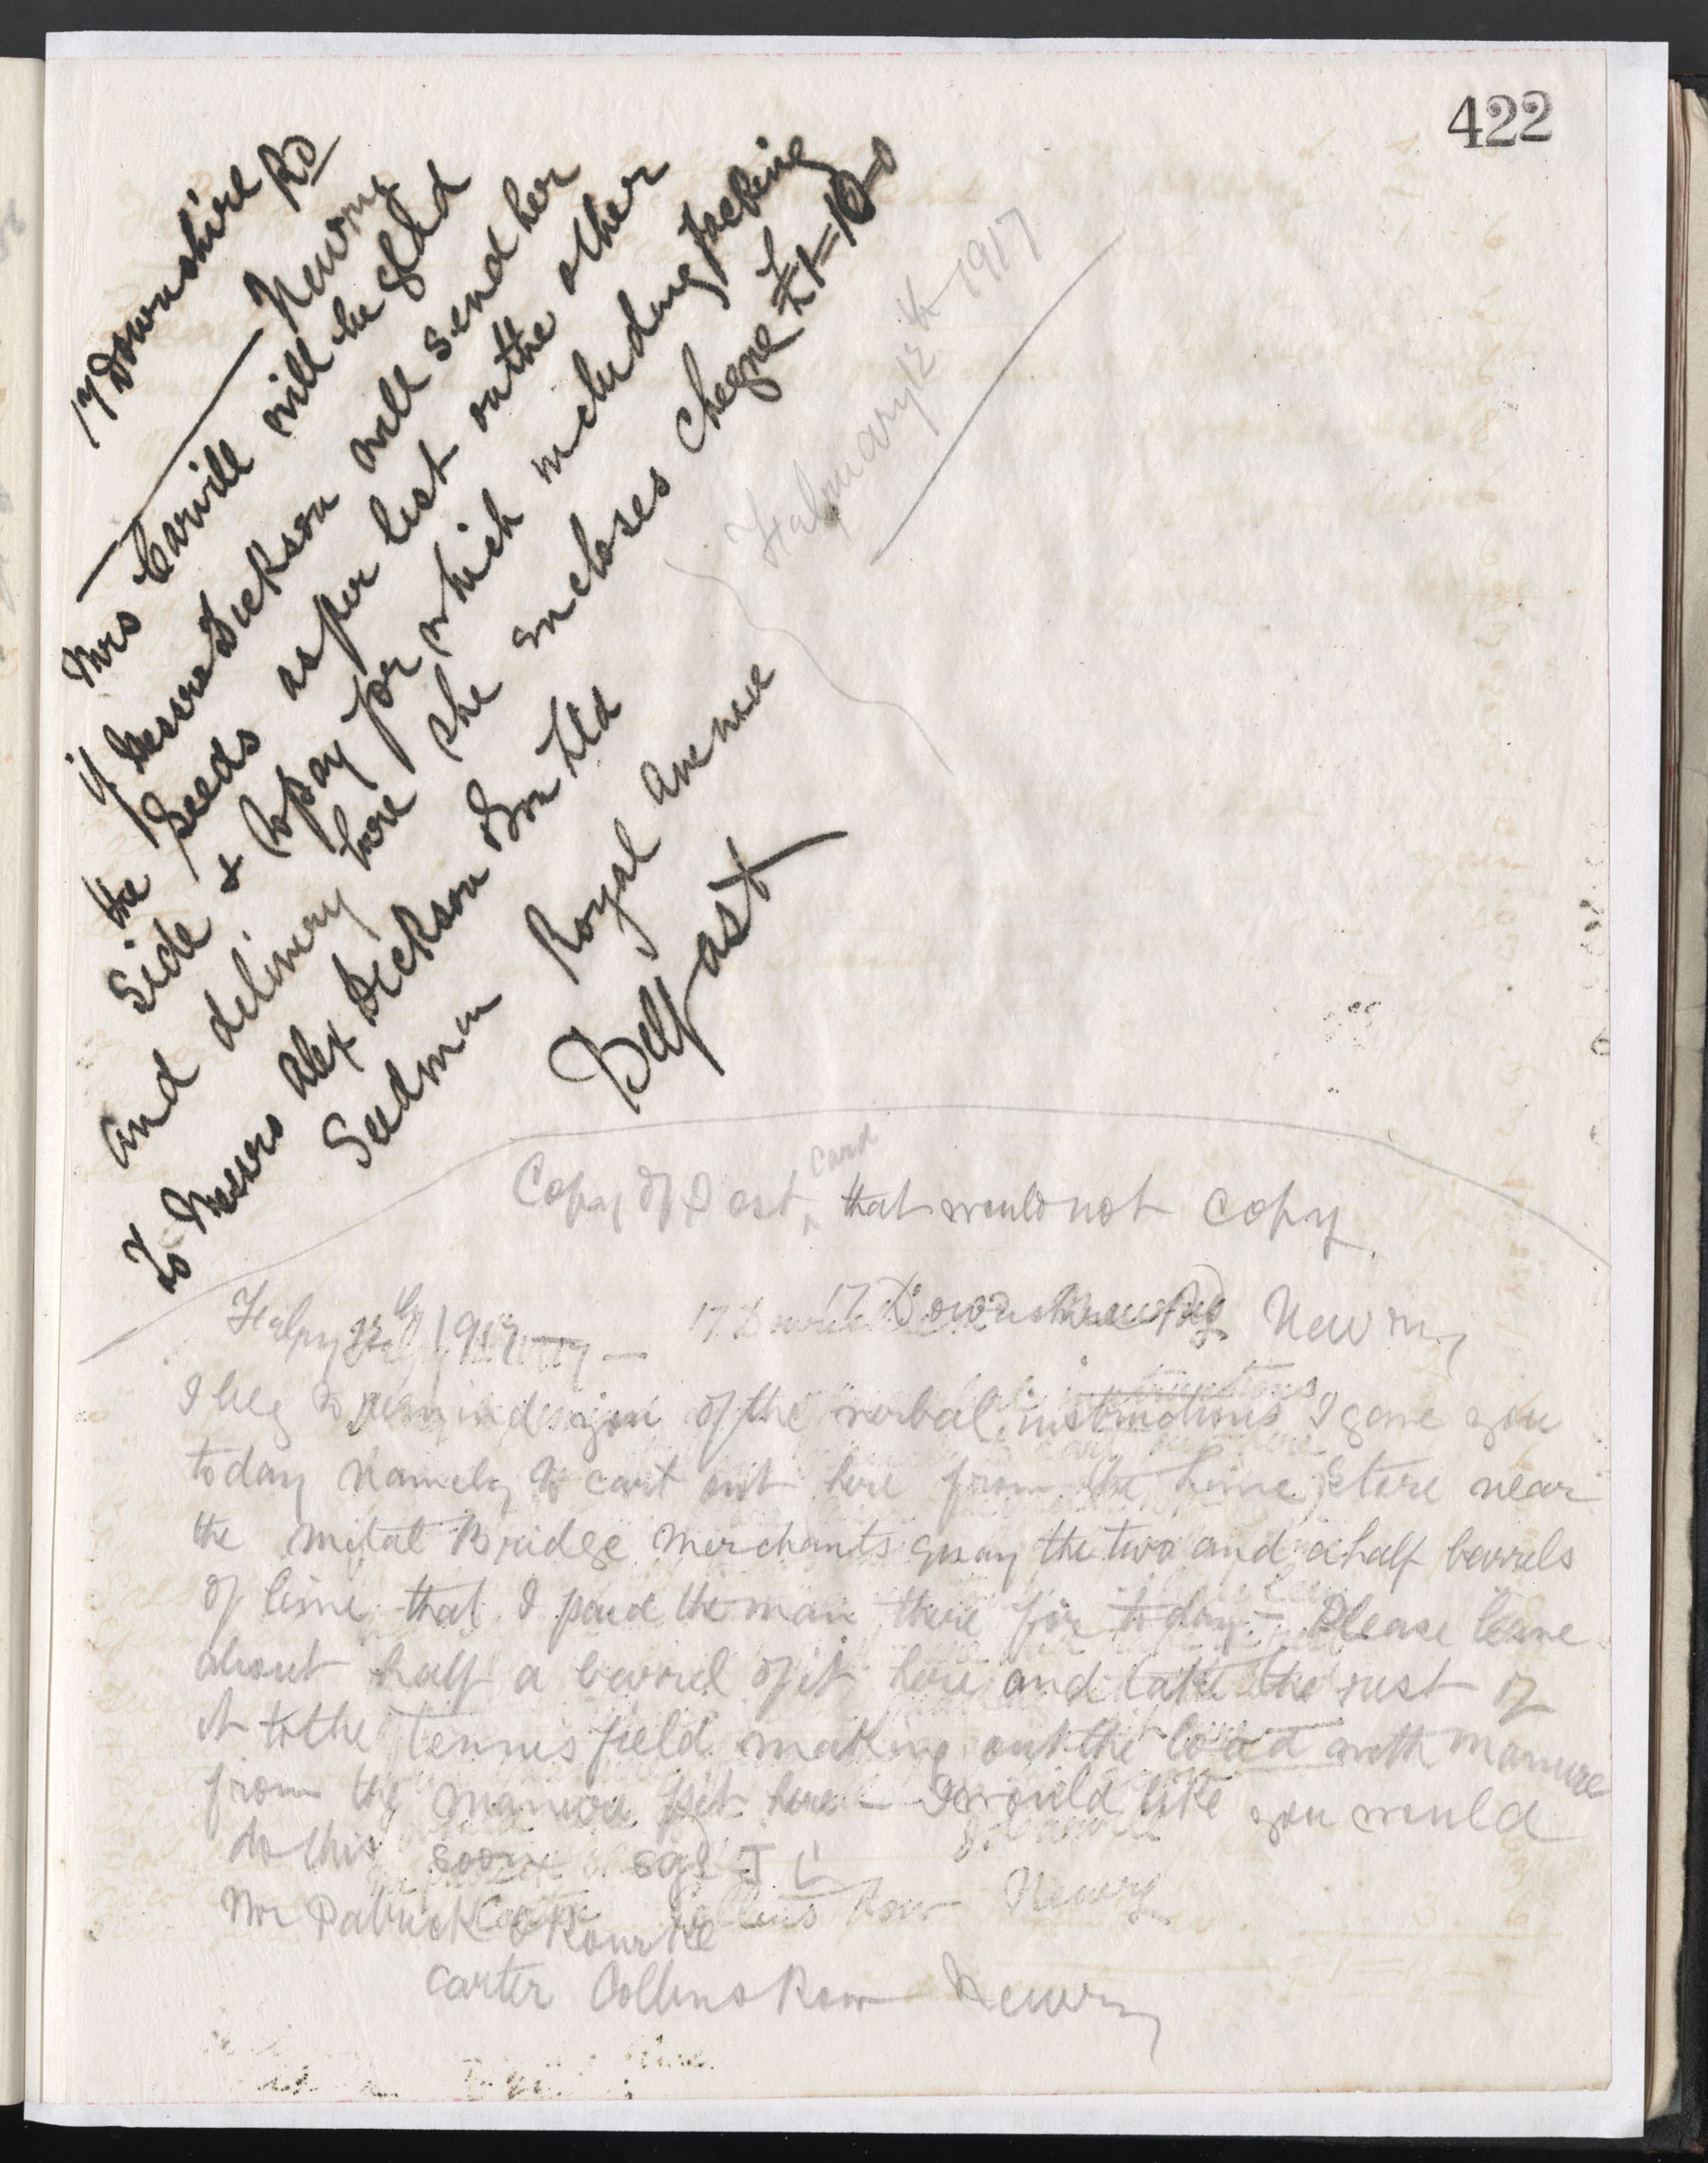 422
17 Downshire Rd
Newry
Mrs Carvill will be glad
if Messrs Dickson will send her
the seeds as per list on the other
side & to pay for which including packing
and delivery here she encloses cheque £1=10=0
To Messrs Alex Dickson & Son Ltd
Seedmen Royal Avenue
Belfast
12th 1917
Copy of Post card that would not copy
17 Downshire Rd Newry
I beg to remind you of the verbal instructions I gave you
today namely to cart out here from the lime store near
the Metal Bridge Merchants Quay the two and a half barrels
of lime that I paid the man there for today - Please leave
about half a barrel of it here and take the rest of
it to the tennis field making out the load with manure
from the manure pit here - I would like you would
do this soon sgd J C
Mr Patrick O Rourke
carter Collins Row Newry